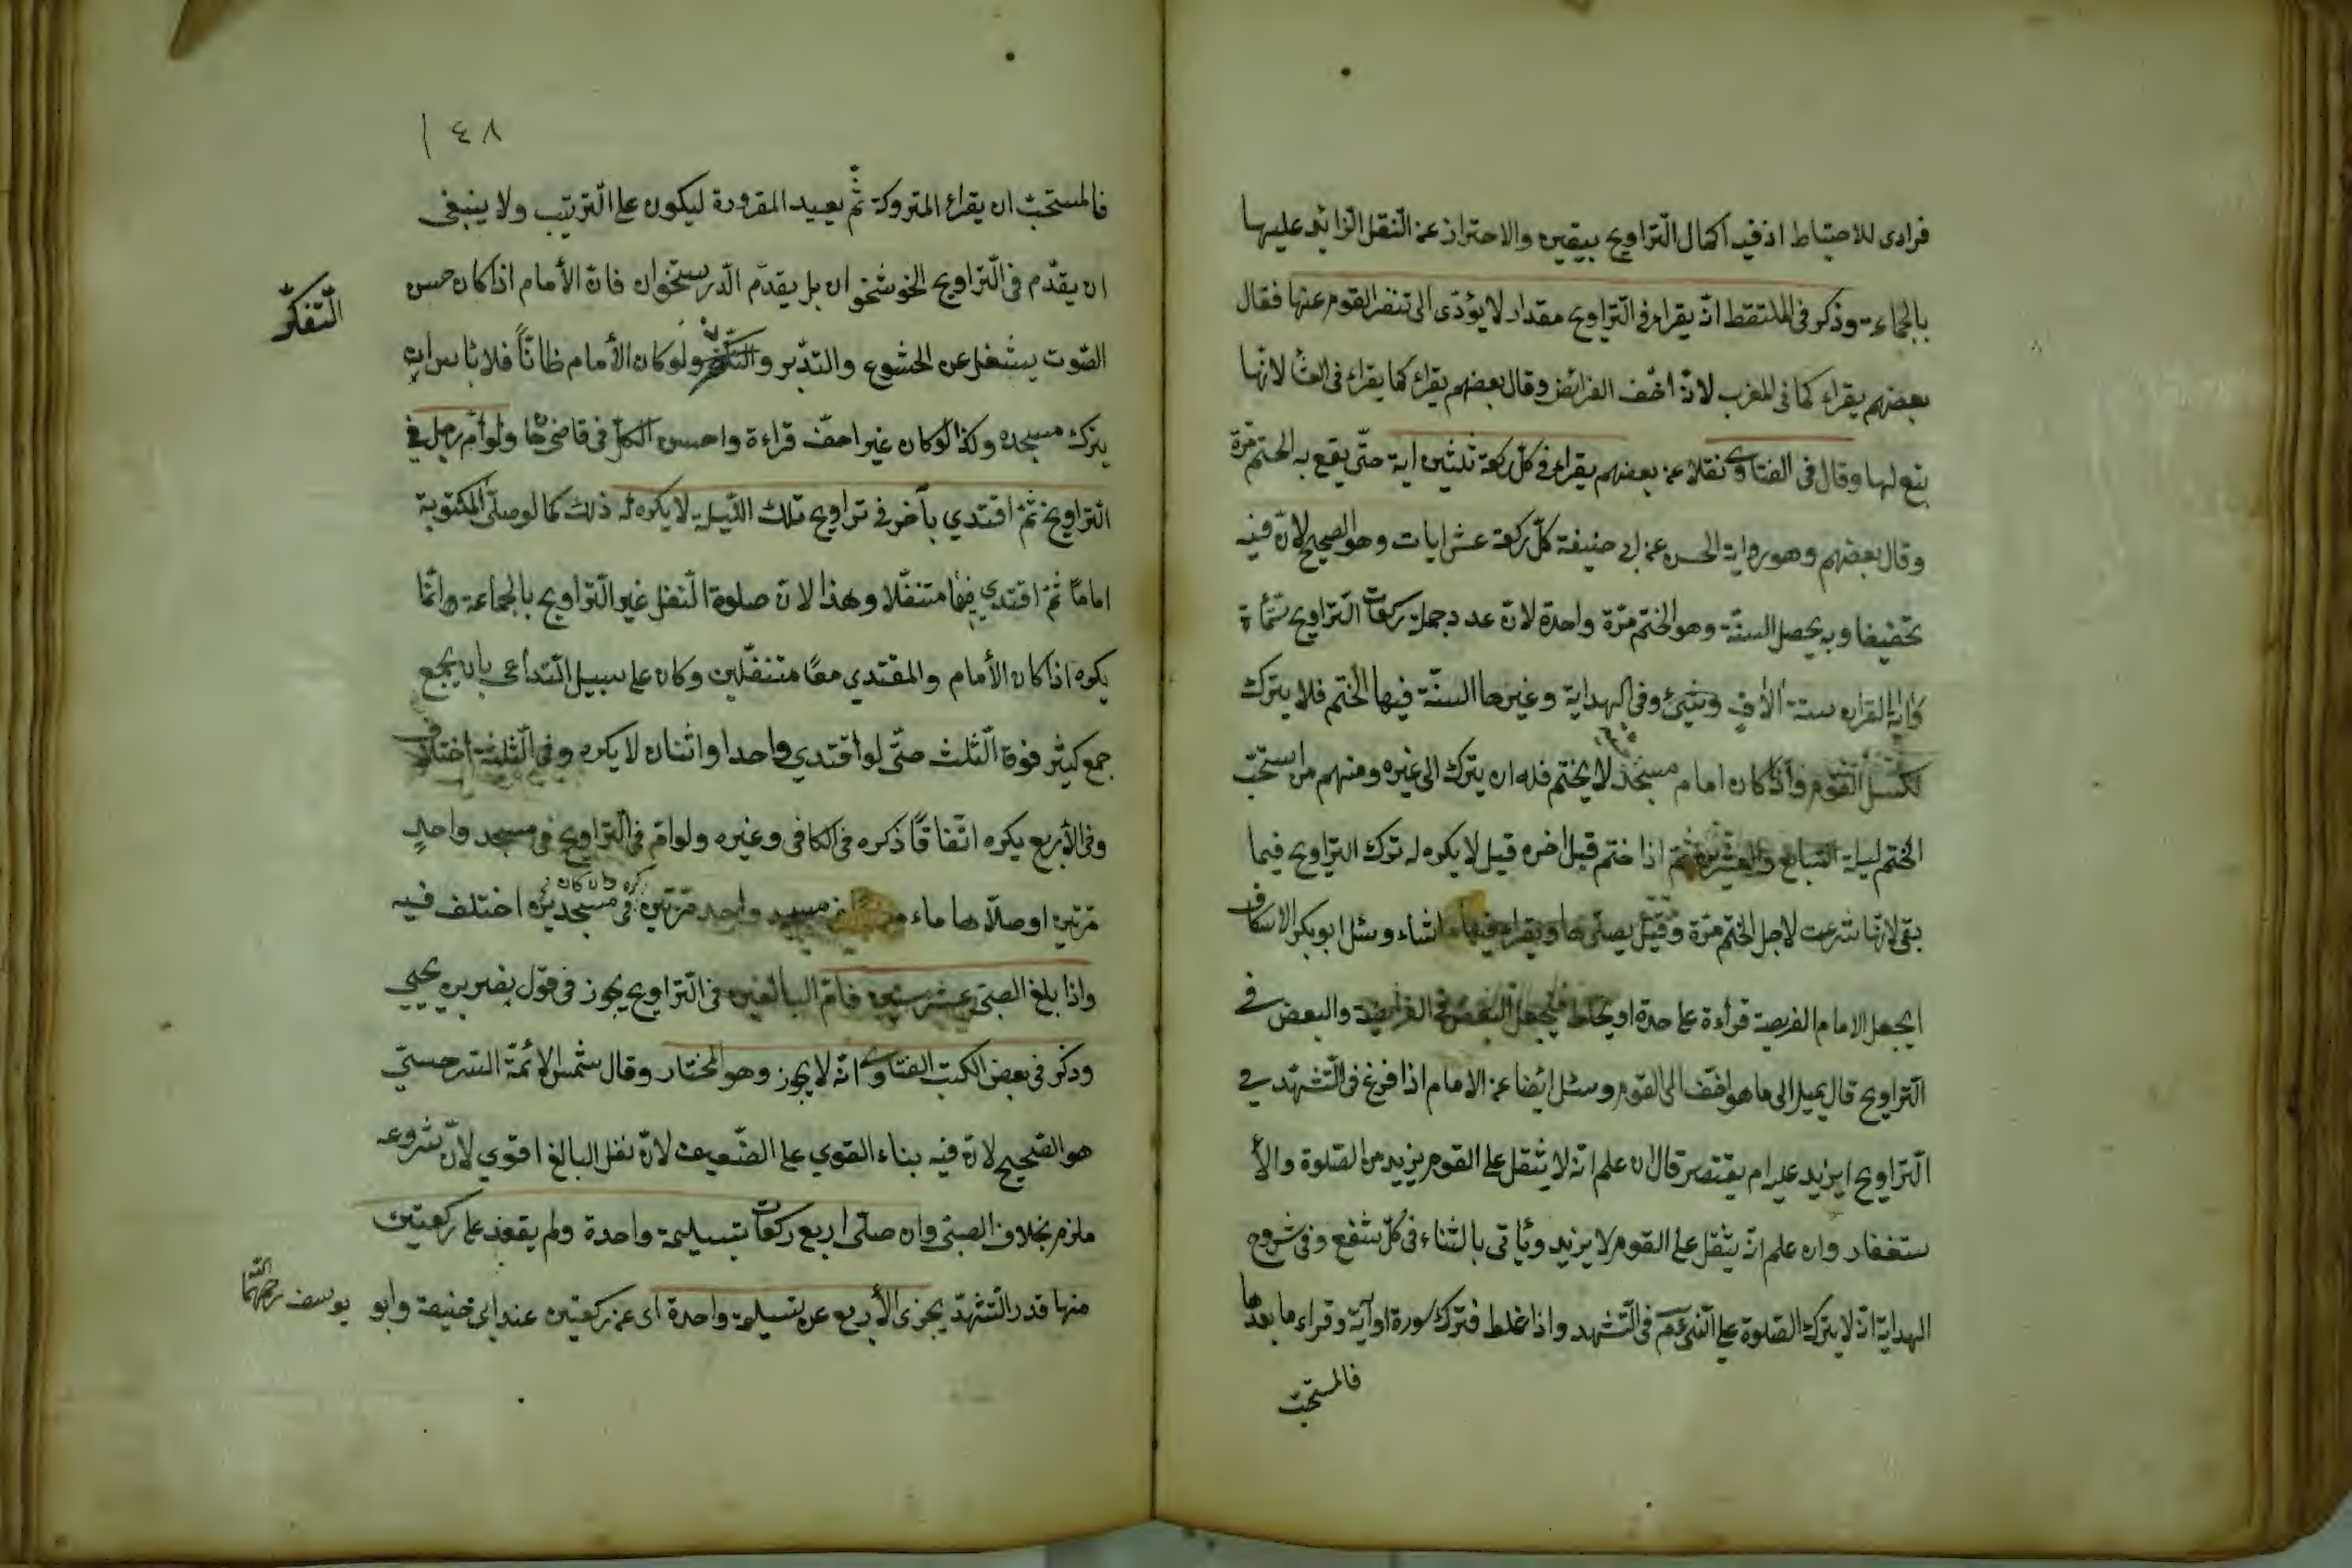 فرادى للاحتياط اذ فيه اكمال التراويح بيقين والاحتراز عن النفل الزائد عليها
بالجماعة وذكر فى الملتقط انه يقراء فى التراويح مقدار لا يؤدّى الى تنفر القوم عنها فقال
بعضهم يقراء كما فى المغرب لانّه اخف الفرائض وقال بعضهم يقراء كما يقراء فى العشا لانّها
تبع لها وقال فى الفتاوى نقلا عن بعضهم يقراء فى كل ركعة ثلثين اية حتّى يقع به الختم مرّة
وقال بعضهم وهو رواية الحسن عن ابى حنيفة كلّ ركعة عشر ايات وهو الصحيح لانّ فيه
تخفيفا وبه يحصل السنّة وهو الختم مرّة واحدة لانّ عدد جملة ركعات التراويح ستّمأة
واية القران ستة آلاف وشيئ وفى الهداية وغيرها السنّة فيها الختم فلا يترك
لكسل القوم واذا كان امام مسجد لا يختم فله ان يترك الى غيره ومنهم من استحبّ
الختم ليلة السّابع والعشرين ثم اذا ختم قبل اخره قيل لا يكره له ترك التراويح فيما
بقى لانّها شرعت لاجل الختم مرّة وقيل يصلّيها ويقراء فيها ما شاء وسئل ابو بكر الاسكاف
ايجعل الامام الفريضة قراءة على حدة او يخلط فيجعل البعض فى الفرايضة والبعض فى
التراويح قال يميل الى ما هو اخف الى القوم وسئل ايضا عن الامام اذا فرغ فى التّشهّد فى
التّراويح ايزيد عليه ام يقتصر قال ان علم انه لا يثقل على القوم يزيد من الصّلوة والأ
ستغفار وان علم انّه يثقل على القوم لا يزيد ويأتى بالثناء فى كلّ شفع وفى شروح
الهداية انّه لا يترك الصّلوة على النّبى عم فى التّشهد واذا غلط فترك سورة او آية وقراء ما بعدها
فالمستحبّ
١٤٨
فالمستحبّ ان يقراء المتروكة ثمّ يعيد المقروءة ليكون على التّرتيب ولا ينبغى
ان يقدّم فى التّراويح الخوشخوان بل يقدّم الدّرستخوان فانّ الأمام اذا كان حسن
الصّوت يشغل عن الخشوع والتدبّر والتفكر ولو كان الأمام طانّاً فلا باس ان
التّفكّر
يترك مسجده وكذا لو كان غير اخفّ قراءة واحسن الكلّ فى قاضيخا ولو أمّ رجل فى
التراويح ثمّ اقتدي بآخر فى تراويح تلك اللّيلة لا يكره له ذلك كما لو صلّى المكتوبة
اماماً ثمّ اقتدي فيها متنفّلا وهذا لانّ صلوة النّفل غير التّراويح بالجماعة وانّما
يكره اذا كان الأمام والمقتدي معًا متنفّلين وكان على سبيل التّداعى بان يجمع
جمع كثير فوق الثّلث حتّى لو اقتدي واحدا واثنان لا يكره وفى الثّلثة اختلاف
وفى الأربع يكره اتّفاقًا ذكره فى الكافى وغيره ولو امّ فى التّراويح فى مسجد واحدٍ
مرّتين او صلّاها ماء مسجد واحد مرّتين كره وان كان فى مسجدين اختلف فيه
واذا بلغ الصبّى عشر سنين فامّ البالغين فى التّراويح يجوز فى قول نصر بن يحيي
وذكر فى بعض الكتب الفتاوى انّه لا يجوز وهو المختار وقال شمس الائمّة السّرخسيّ
هو الصّحيح لانّ فيه بناء القوي على الضّعيف لانّ نفل البالغ اقوي لانّ شروعه
ملزم بخلاف الصبّى وان صلّى اربع ركعات بتسليمة واحدة ولم يقعد على ركعتين
منها قدر التّشهدّ يجزى الأربع عن تسليمة واحدة اى عن ركعتين عند ابى حنيفة وابو يوسف رحمهما الله